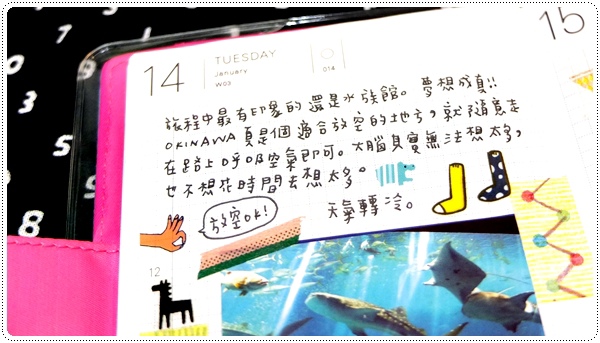 14
TUESDAY
January
W03
014
15
旅程中最有印象的還是水族館。夢想成真!!
OKINAWA真是個適合放空的地方，就隨意走
在路上呼吸空氣即可。大腦其實無法想太多，
也不想花時間去想太多。
天氣轉冷。
放空OK!
12